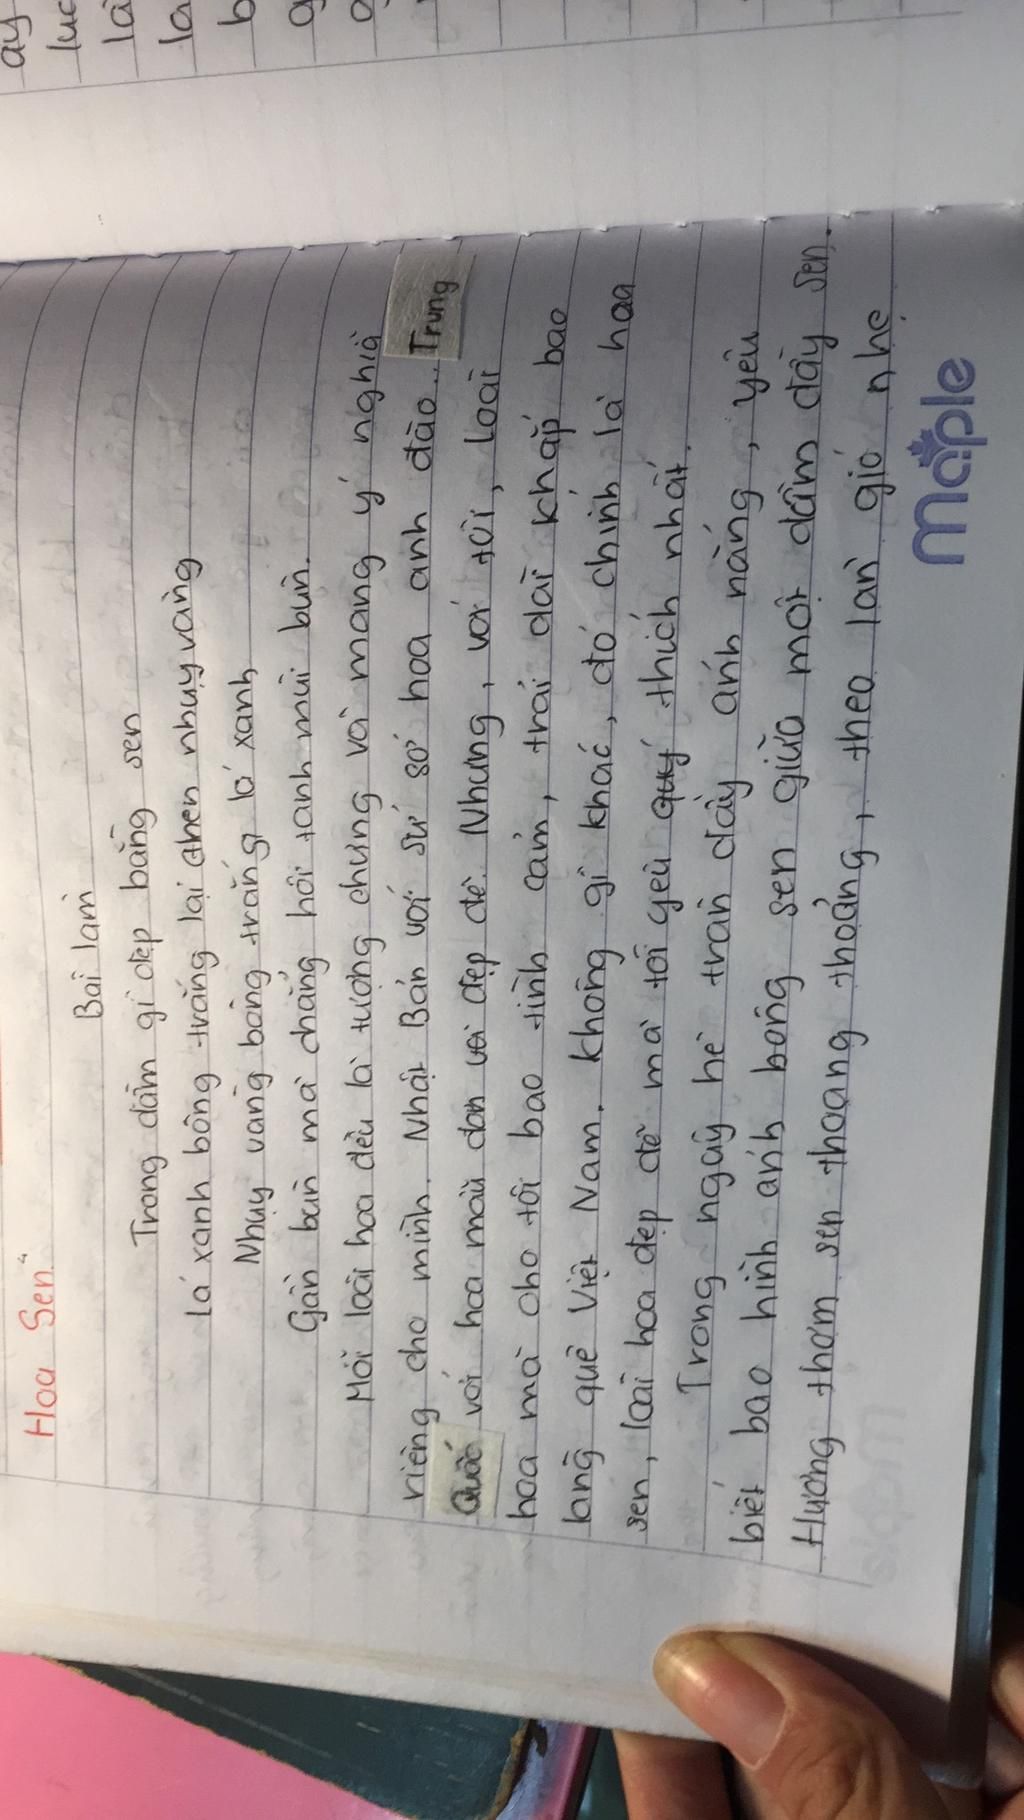 Hoa Sen"
Bài làm
Trong đầm gì đẹp bằng sen
Lá xanh bông trắng lại chen nhụy vàng
Nhụy vàng bông trắng lá xanh
Gần bùn mà chẳng hôi tanh mùi bùn.
Mỗi loài hoa đều là tượng chưng và mang ý nghĩa
riêng cho mình. Nhật Bản với sứ sở hoa anh đào.. Trung
Quốc với hoa mẫu đơn với đẹp đẽ. Nhưng, với tôi, loài
hoa mà cho tôi bao tình cảm, trải dài khắp bao
làng quê Việt Nam. không gì khác, đó chính là hoa
sen, loài hoa đẹp đẽ mà tôi yêu quý thích nhất.
Trong ngày hè tràn đầy ánh nắng, yêu
biết bao hình ảnh bông sen giữa một đầm đầy sen.
Hương thơm sen thoang thoảng, theo làn gió nhẹ
maple
ay
luc
là
la
b